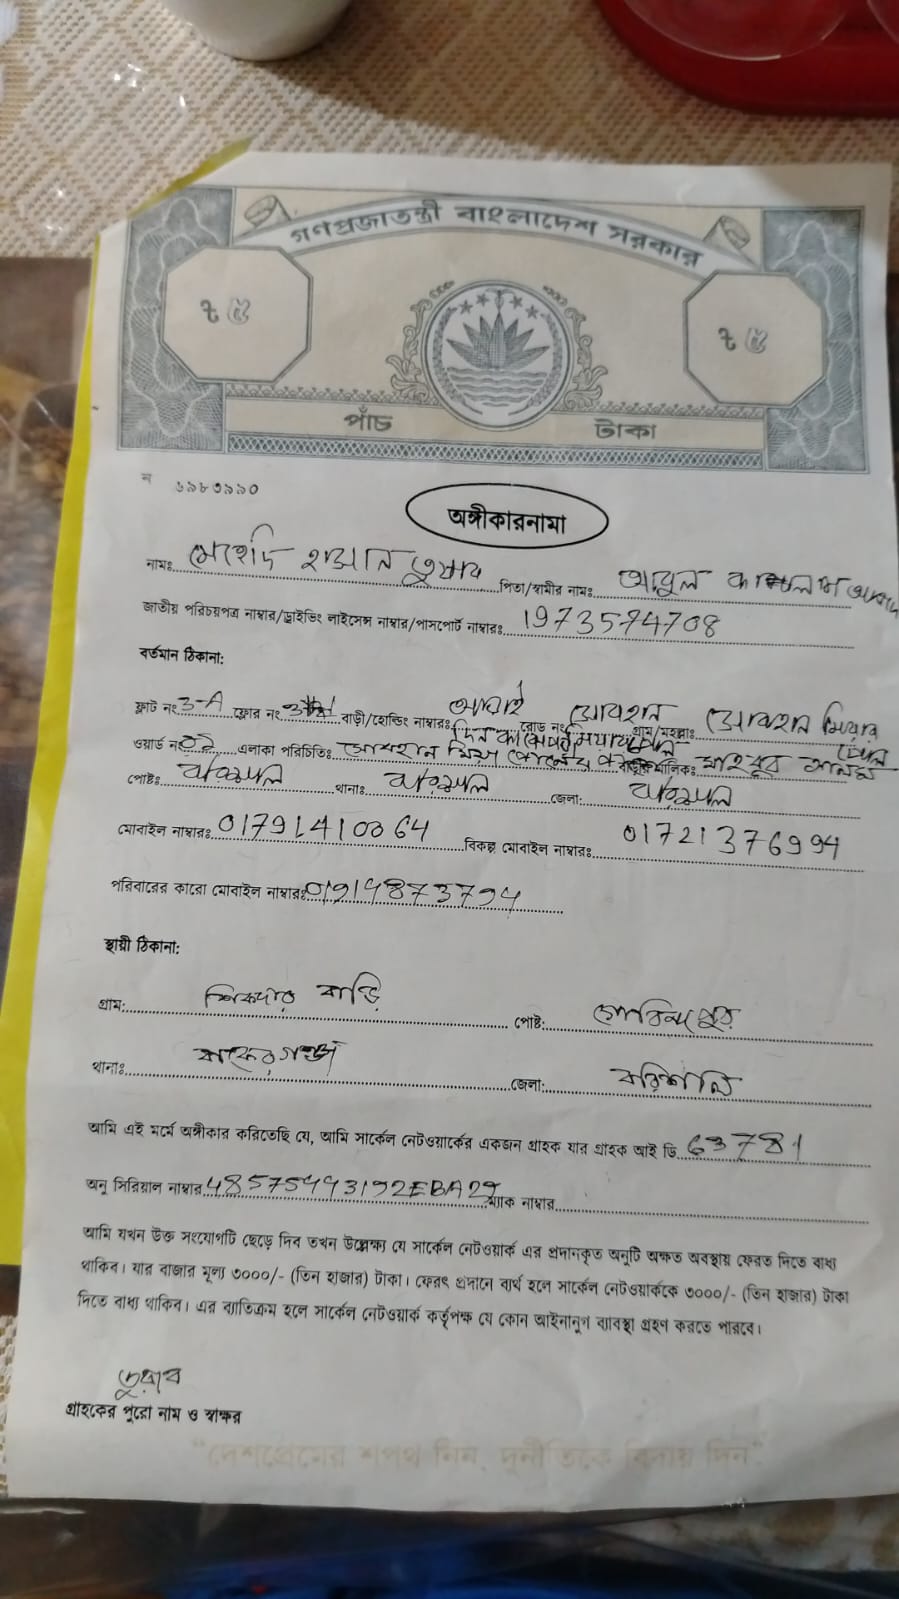 গণপ্রজাতন্ত্রী বাংলাদেশ সরকার
ট ৫ ট ৫
পাঁচ টাকা
ন ৬৯৮৩৯৯০
অঙ্গীকারনামা
নামঃ মেহেদি হাসান তুষার পিতা/স্বামীর নামঃ আবুল কালাম
জাতীয় পরিচয়পত্র নাম্বার/ড্রাইভিং লাইসেন্স নাম্বার/পাসপোর্ট নাম্বারঃ 1973574708
বর্তমান ঠিকানা:
ফ্লাট নং 3-A ফ্লোর নং বাড়ী/হোল্ডিং নাম্বারঃ রোড নং সোবহান গ্রাম/মহল্লাঃ সোবহান মিয়ার
ওয়ার্ড নং এলাকা পরিচিতিঃ সোবহান মিয়া বাড়ির মালিকঃ মাহবুব আলম
পোষ্টঃ বরিশাল থানাঃ বরিশাল জেলা: বরিশাল
মোবাইল নাম্বারঃ 01791410064 বিকল্প মোবাইল নাম্বারঃ 01721376994
পরিবারের কারো মোবাইল নাম্বারঃ
স্থায়ী ঠিকানা:
গ্রাম: শিকদার বাড়ি পোষ্ট: গোবিন্দপুর
থানাঃ বাকেরগঞ্জ জেলা: বরিশাল
আমি এই মর্মে অঙ্গীকার করিতেছি যে, আমি সার্কেল নেটওয়ার্কের একজন গ্রাহক যার গ্রাহক আই ডি 63781
অনু সিরিয়াল নাম্বার ম্যাক নাম্বার
আমি যখন উক্ত সংযোগটি ছেড়ে দিব তখন উল্লেক্ষ্য যে সার্কেল নেটওয়ার্ক এর প্রদানকৃত অনুটি অক্ষত অবস্থায় ফেরত দিতে বাধ্য
থাকিব। যার বাজার মূল্য ৩০০০/- (তিন হাজার) টাকা। ফেরৎ প্রদানে ব্যর্থ হলে সার্কেল নেটওয়ার্ককে ৩০০০/- (তিন হাজার) টাকা
দিতে বাধ্য থাকিব। এর ব্যাতিক্রম হলে সার্কেল নেটওয়ার্ক কর্তৃপক্ষ যে কোন আইনানুগ ব্যাবস্থা গ্রহণ করতে পারবে।
তুষার
গ্রাহকের পুরো নাম ও স্বাক্ষর
"দেশপ্রেমের শপথ নিন, দুর্নীতিকে বিদায় দিন"